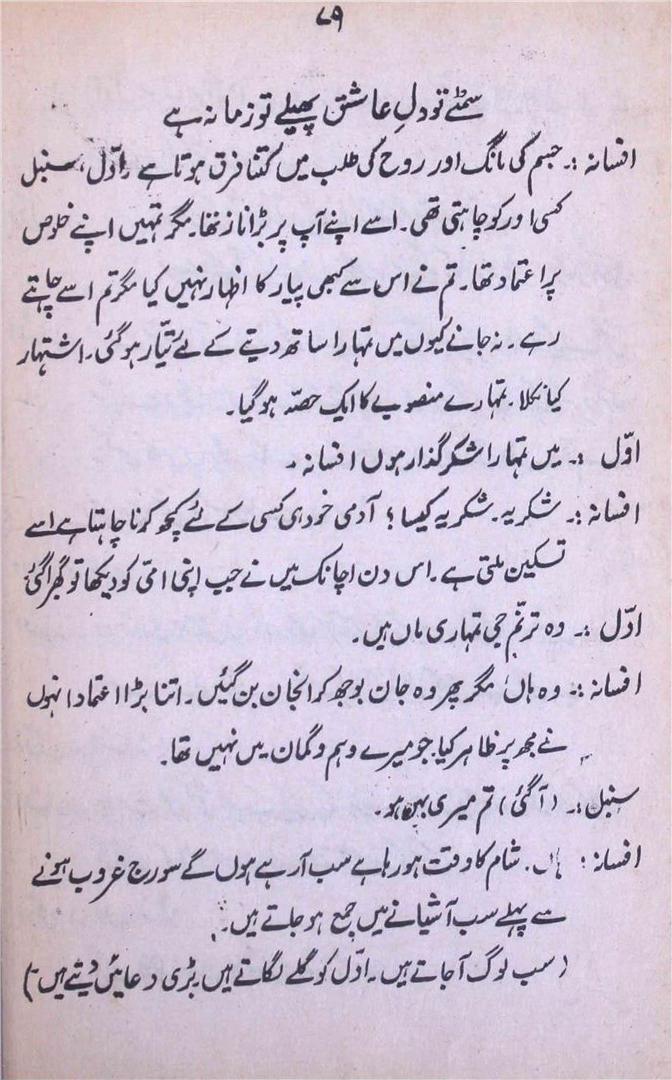 ۷۹
سمٹے تو دلِ عاشق پھیلے تو زمانہ ہے
افسانہ :۔ جسم کی مانگ اور روح کی طلب میں کتنا فرق ہوتا ہے ۔ اوّل، سنبل
کسی اور کو چاہتی تھی۔ اسے اپنے آپ پر بڑا ناز تھا۔ مگر تمہیں اپنے خلوص
پر اعتماد تھا۔ تم نے اس سے کبھی پیار کا اظہار نہیں کیا مگر تم اسے چاہتے
رہے ۔ نہ جانے کیوں میں تمہارا ساتھ دینے کے لئے تیّار ہو گئی۔ اشتہار
کیا نکلا۔ تمہارے منصوبے کا ایک حصّہ ہو گیا۔
اوّل :۔ میں تمہارا شکر گذار ہوں افسانہ ۔
افسانہ :۔ شکریہ۔ شکریہ کیسا ؛ آدمی خود ہی کسی کے لئے کچھ کرنا چاہتا ہے اسے
تسکین ملتی ہے ۔ اس دن اچانک میں نے جب اپنی امّی کو دیکھا تو گھبرا گئی
اوّل :۔ وہ ترنّم جی تمہاری ماں ہیں۔
افسانہ :۔ وہ ہاں مگر پھر وہ جان بوجھ کر انجان بن گئیں ۔ اتنا بڑا اعتماد انہوں
نے مجھ پر ظاہر کیا جو میرے وہم و گمان میں نہیں تھا۔
سنبل :۔ (آ گئی) تم میری بہن ہو۔
افسانہ : ہاں۔ شام کا وقت ہو رہا ہے سب آ رہے ہوں گے سورج غروب ہونے
سے پہلے سب آشیانے میں جمع ہو جاتے ہیں۔
(سب لوگ آ جاتے ہیں ۔ اوّل کو گلے لگاتے ہیں بڑی دعائیں دیتے ہیں۔)